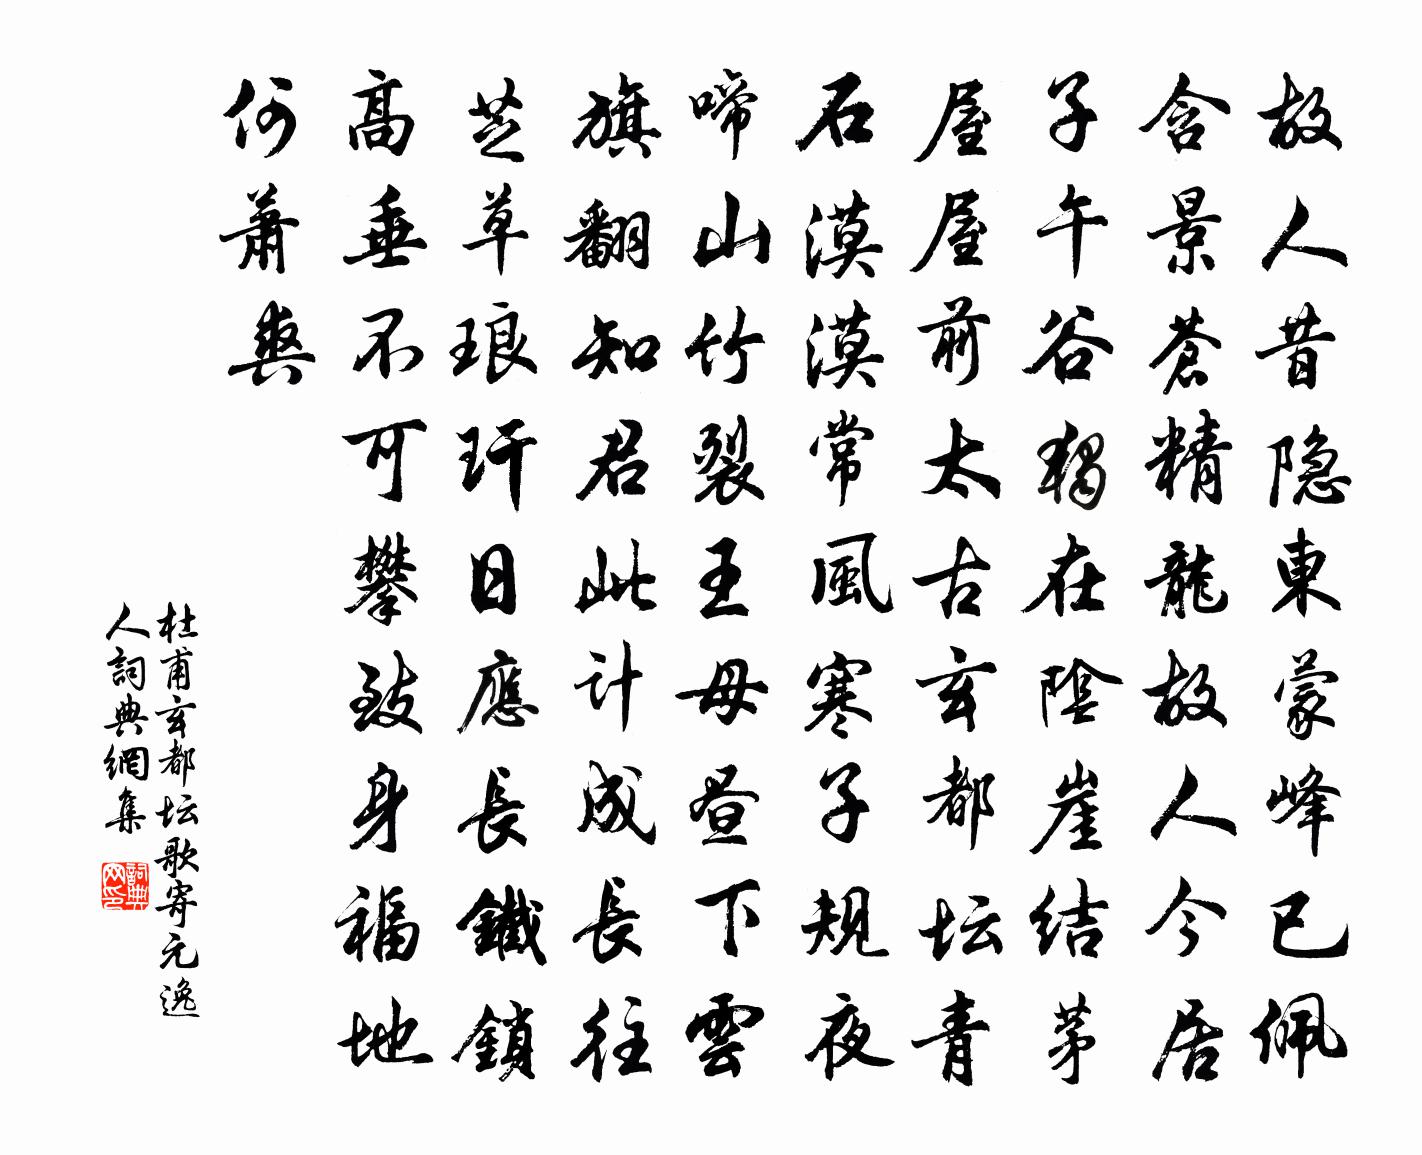 故人昔隐東蒙峰已佩
含景蒼精龍故人今居
子午谷獨在陰崖結茅
屋屋前太古玄都坛青
石漠漠常風寒子規夜
啼山竹裂王母昼下雲
旗翻知君此计成長往
芝草琅玕日應長鐵鎖
高垂不可攀致身福地
何蕭爽
杜甫玄都坛歌寄元逸
人詞典網集
詞典
网印